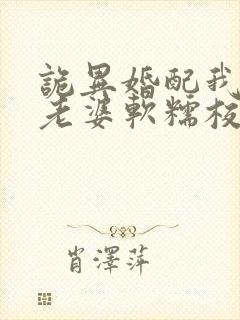 詭異婚配我
老婆軟糯核
肖澤萍